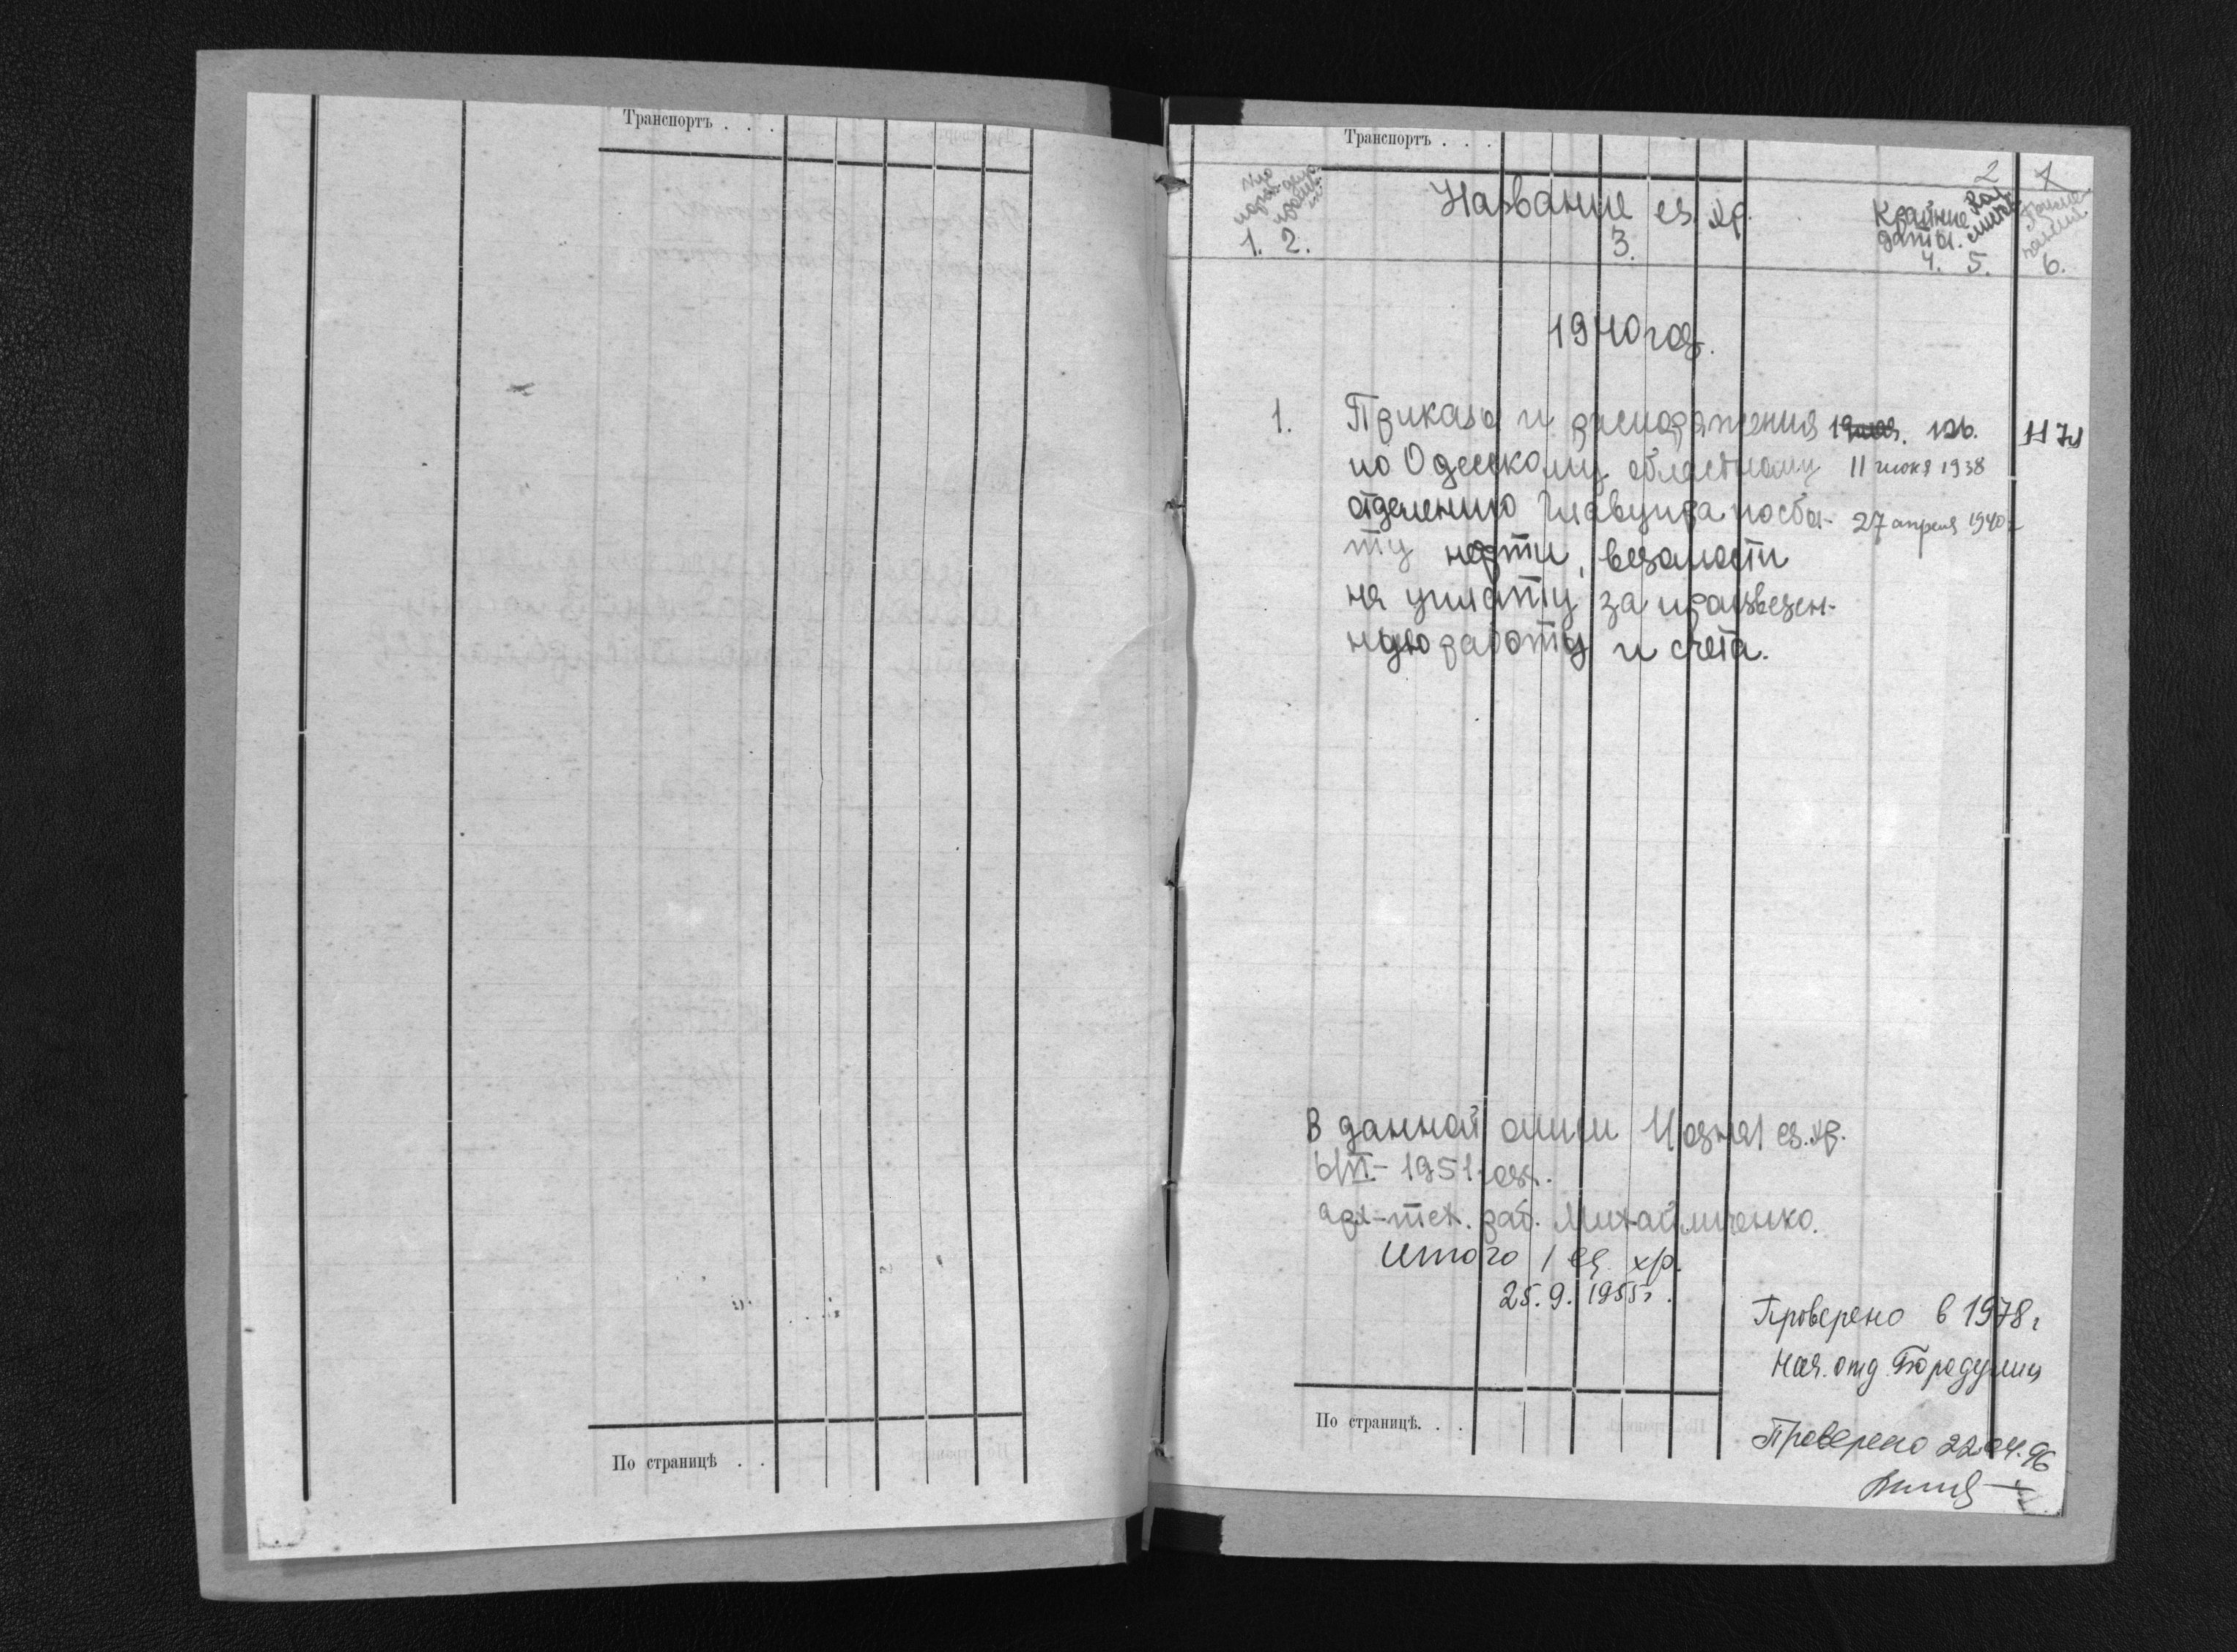 Транспортъ . . .
По страницѣ . .
Транспортъ . . .
2 1
Название ед. хр.
Крайние даты.
1. 2. 3. 4. 5. 6.
1940 год.
1. Приказы и распоряжения
по Одесскому областному 11 июня 1938
отделению Главунра по сбы- 27 апреля 1940 г
ту нефти, ведомости
на уплату за произведен-
ную работу и счета.
В данной описи 1/одна/ ед. хр.
6/VI - 1951 год.
арх-тех. раб. Михайличенко.
Итого 1 ед. хр.
25. 9. 1955 г.
Проверено в 1978 г
Нач. отд. Бородулин
По страницѣ. . .
Проверено 22.04.96